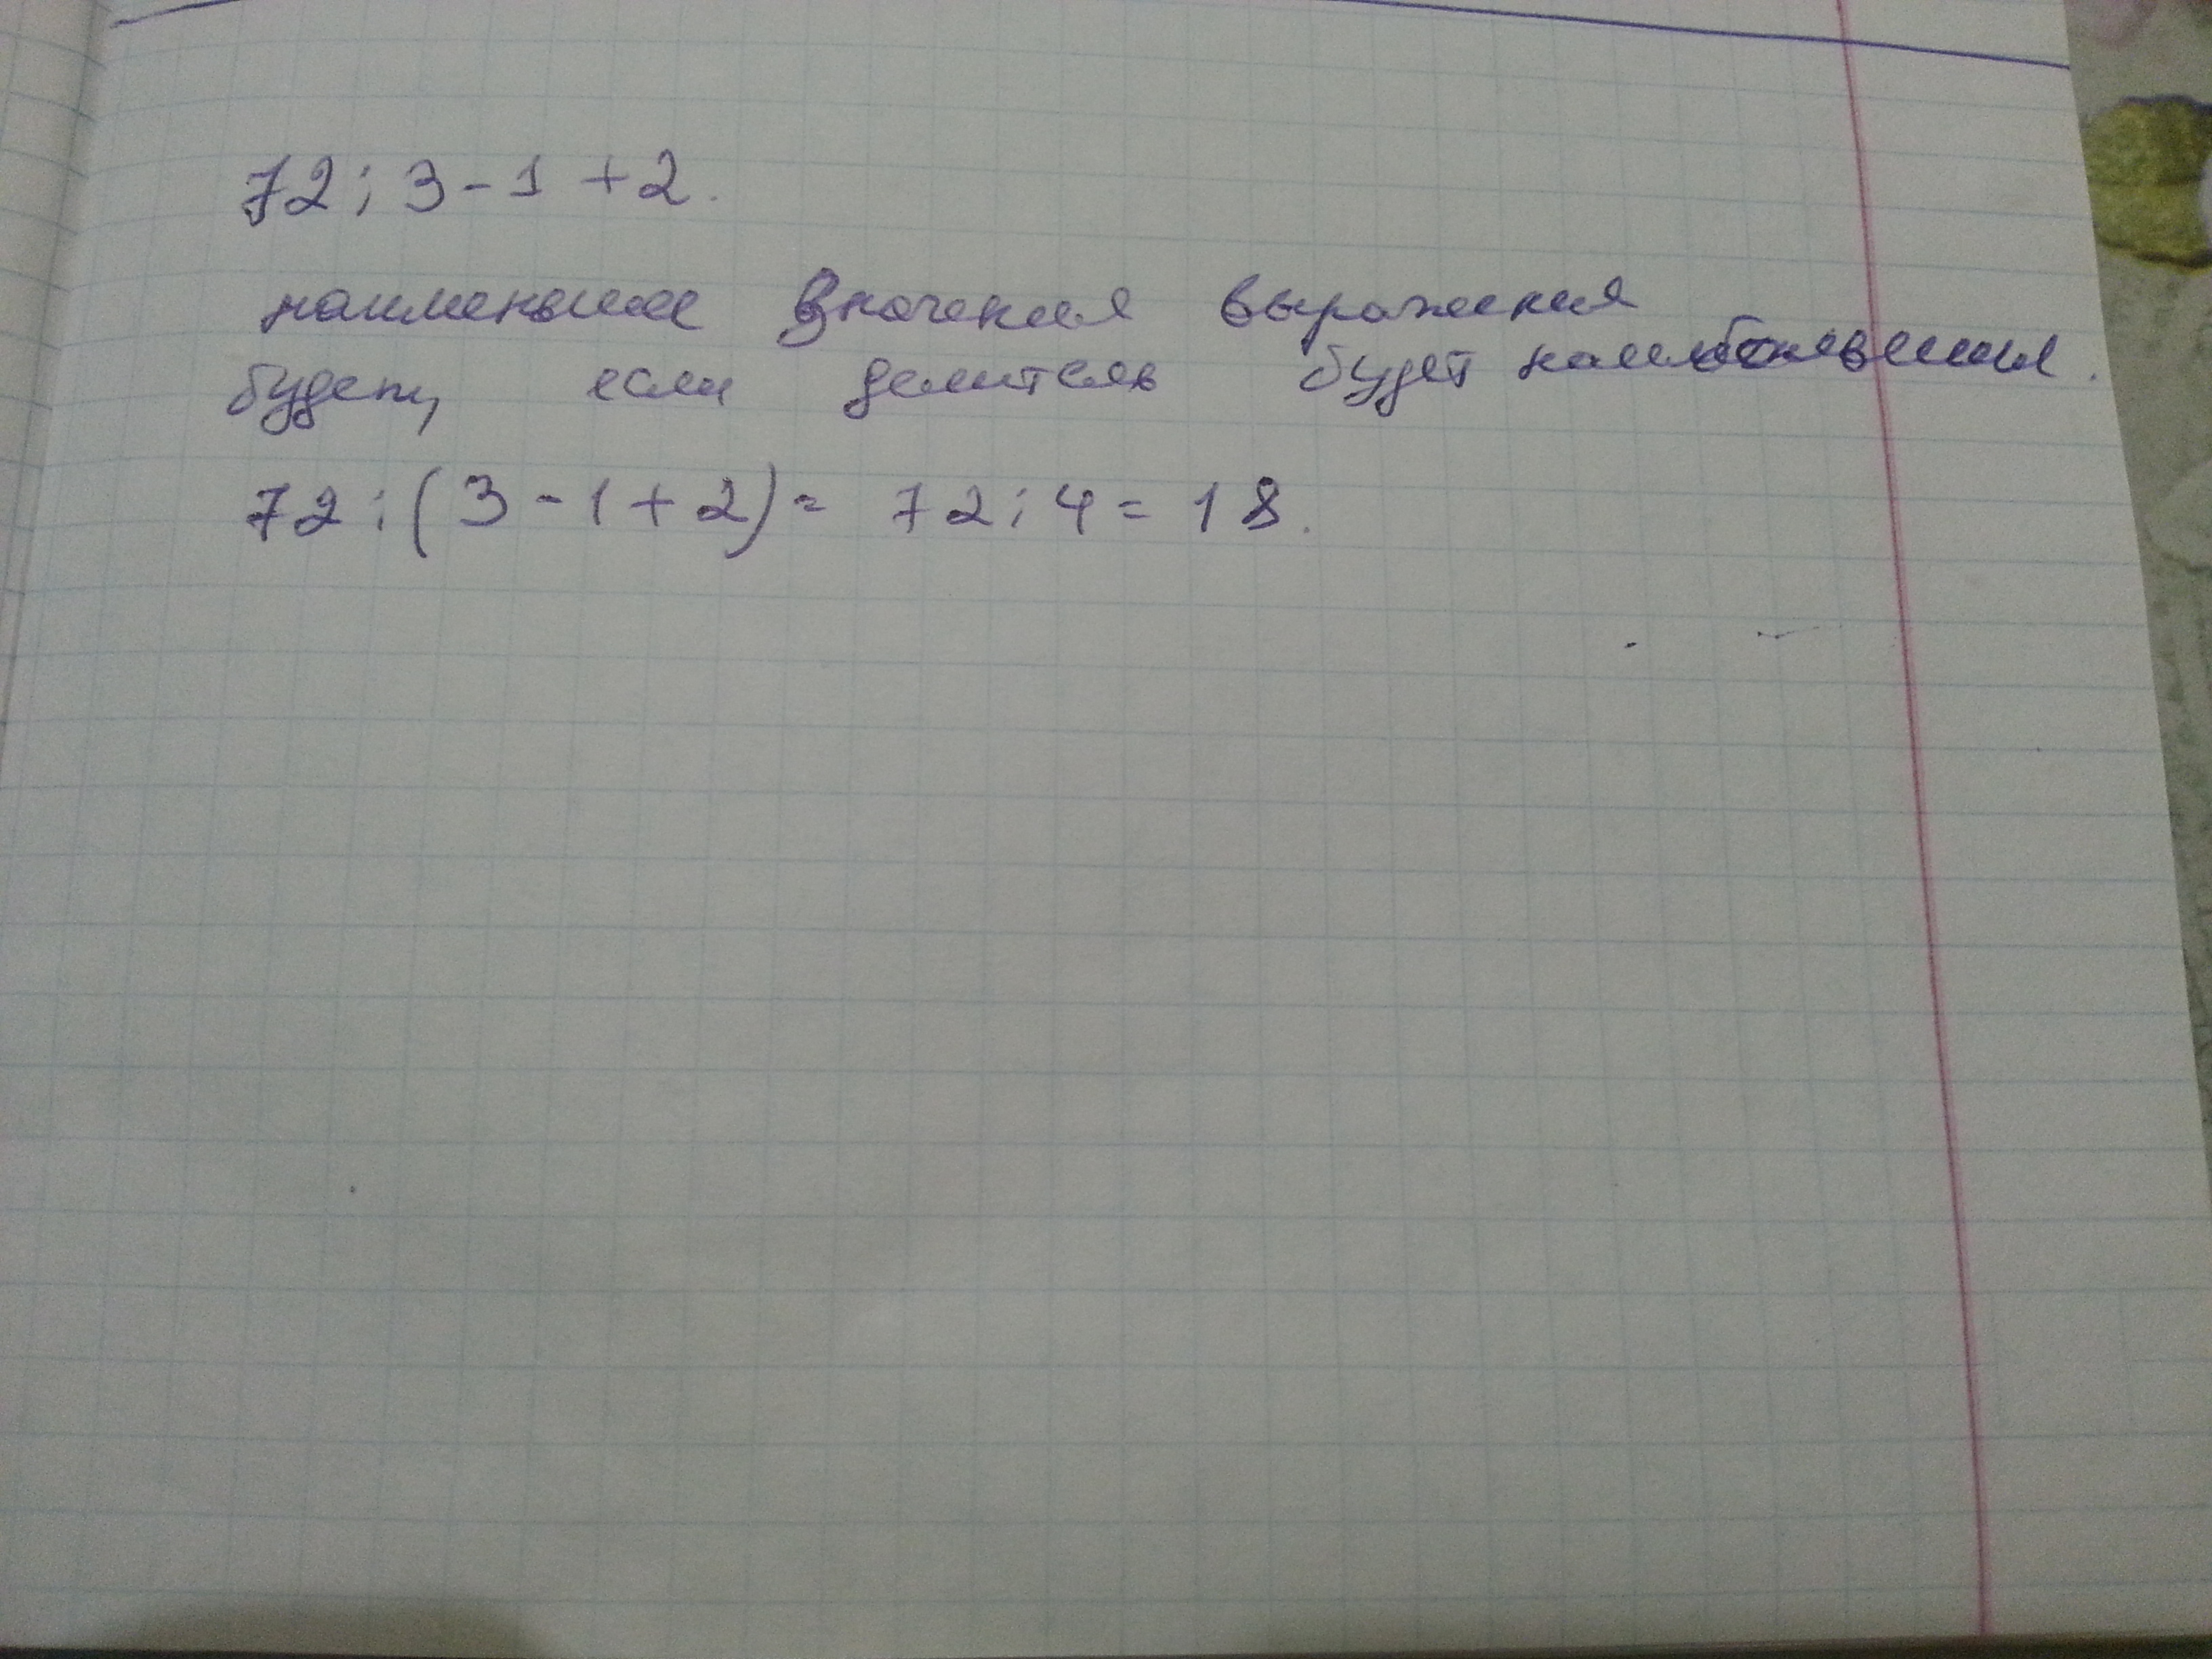 72 : 3 - 1 + 2.
наименьшее значения выражения
будет, если делитель будет наибольшим.
72 : (3 - 1 + 2) = 72 : 4 = 18.